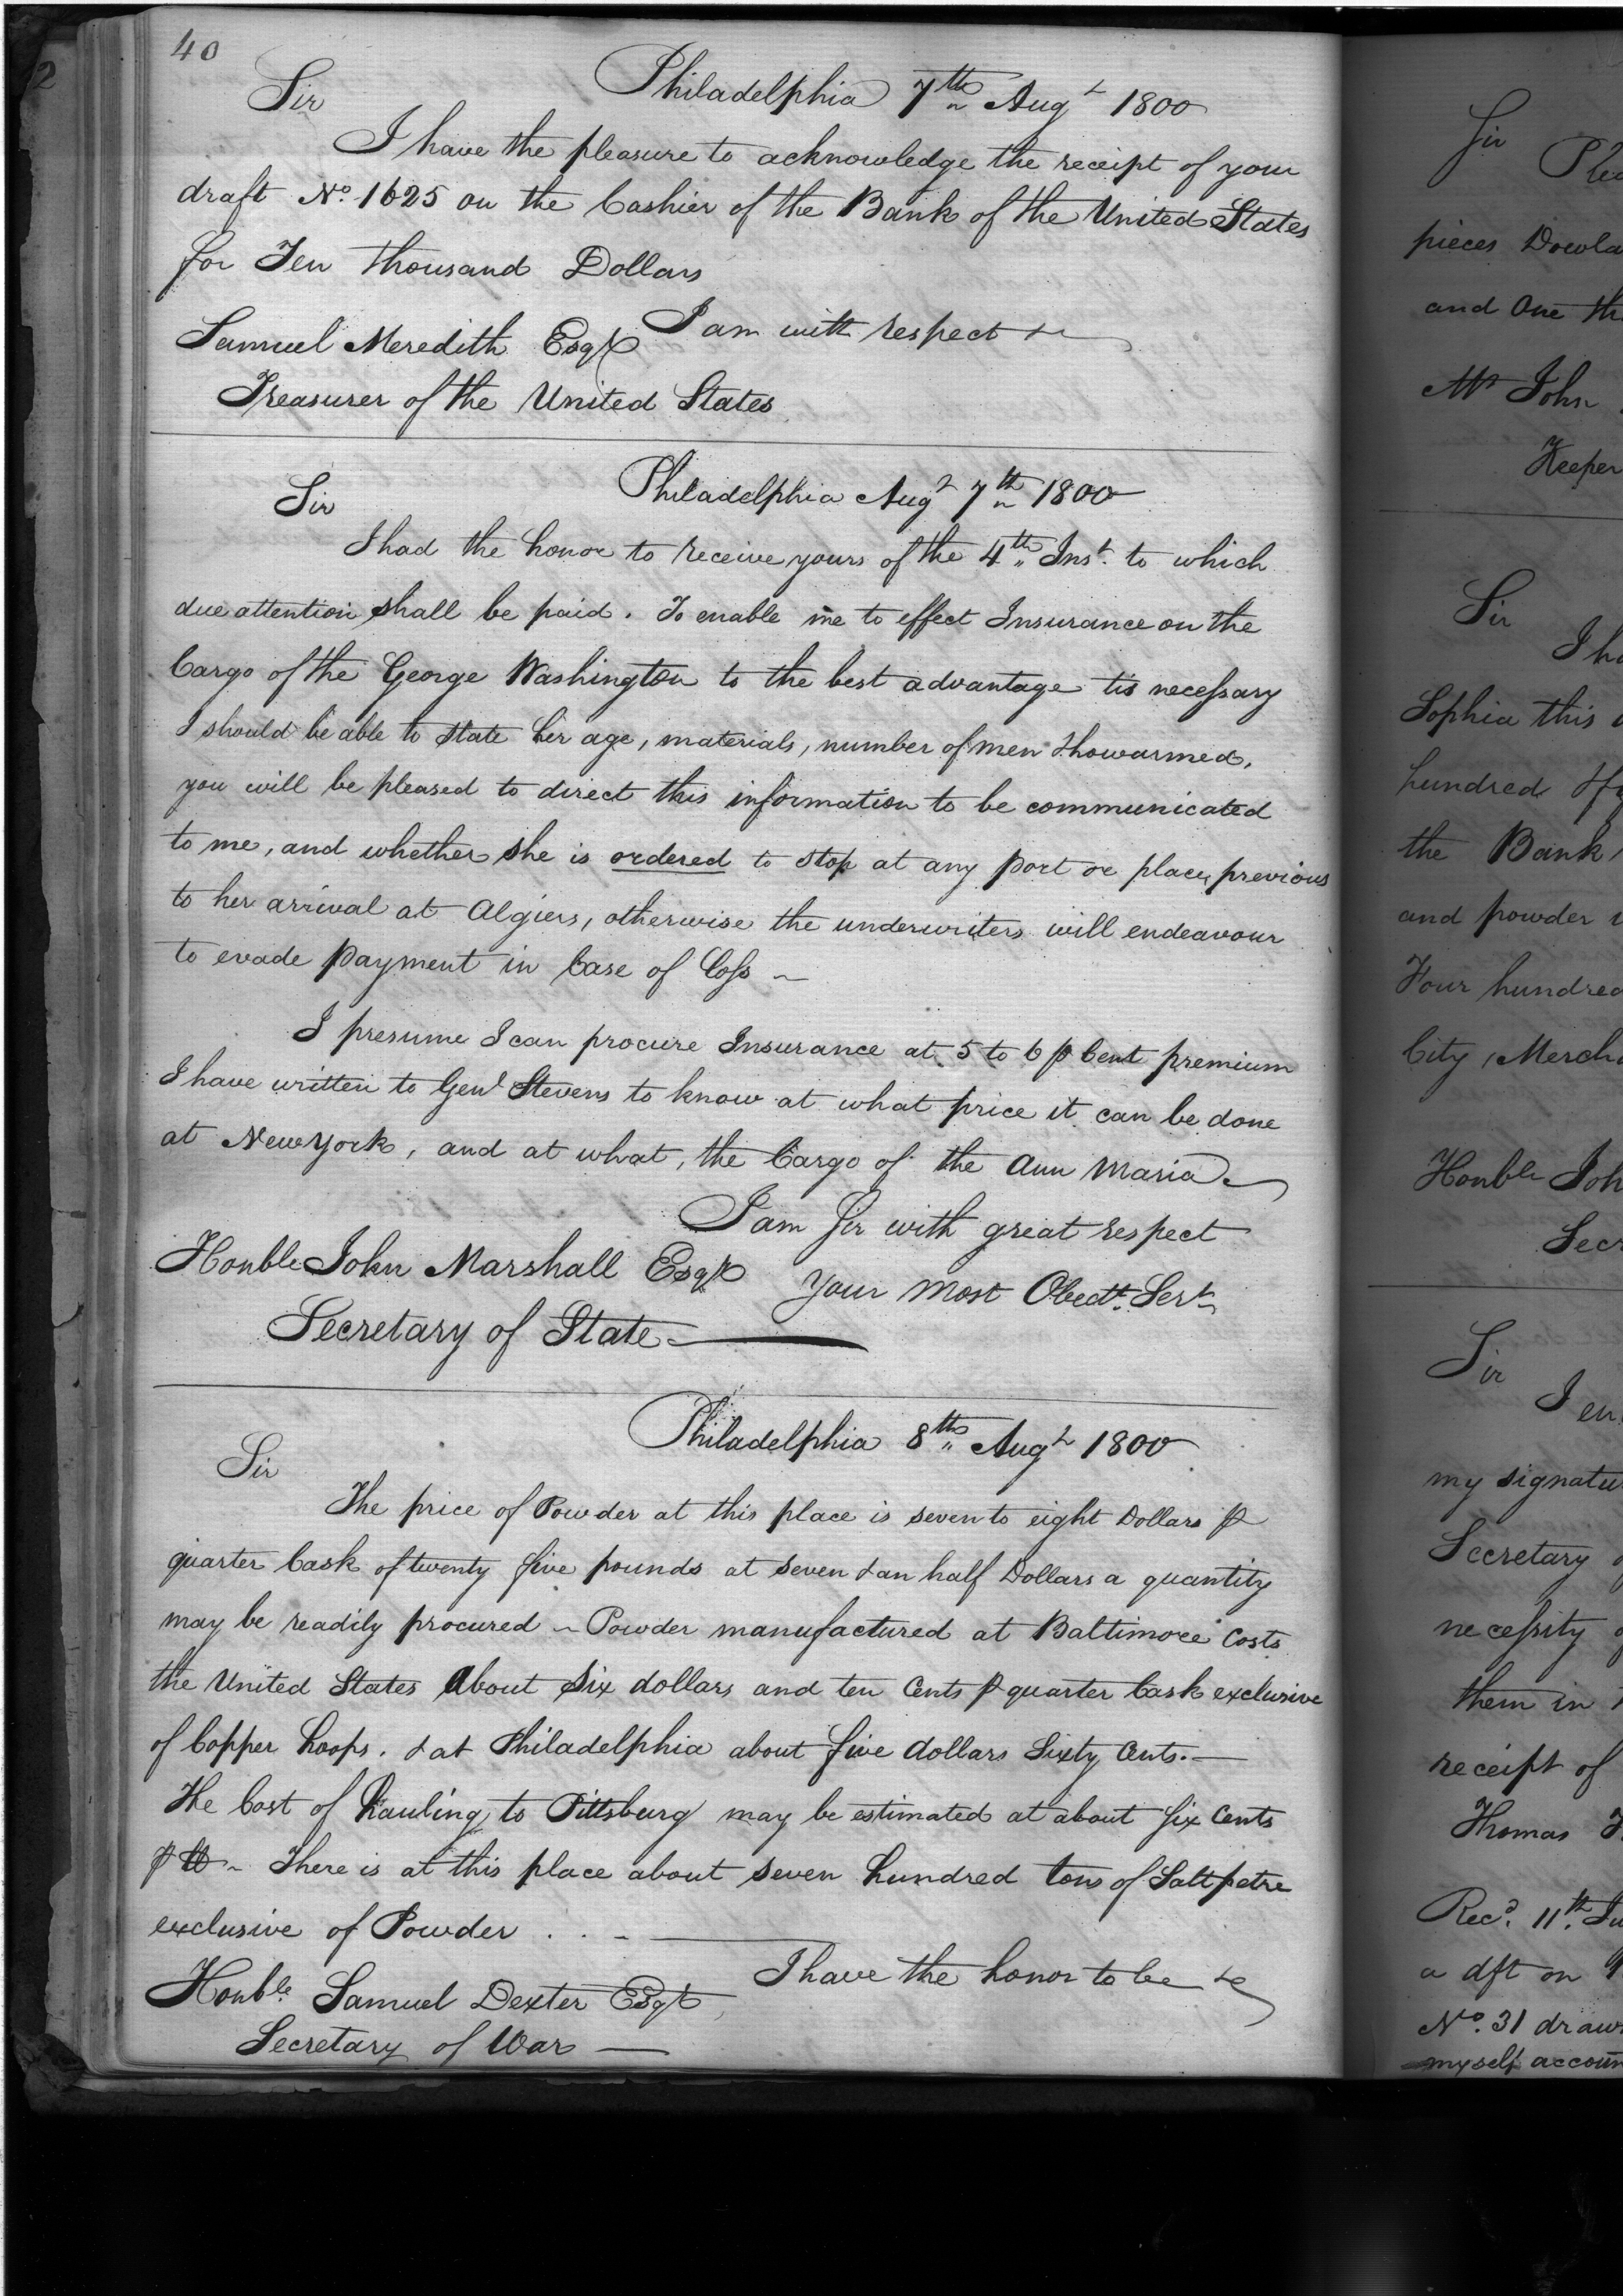 40
Philadelphia 7th Augt 1800
Sir
I have the pleasure to acknowledge the receipt of your
draft No. 1625 on the Cashier of the Bank of the United States
for Ten thousand Dollars
I am with respect &c
Samuel Meredith Esqr
Treasurer of the United States
Philadelphia Augt 7th 1800
Sir
I had the honor to receive yours of the 4th Inst. to which
due attention shall be paid. To enable me to effect Insurance on the
Cargo of the George Washington to the best advantage tis necessary
I should be able to state her age, materials, number of men & how armed,
you will be pleased to direct this information to be communicated
to me, and whether she is ordered to stop at any port or place, previous
to her arrival at Algiers, otherwise the underwriters will endeavour
to evade payment in Case of Loss ~
I presume I can procure Insurance at 5 to 6 p Cent premium
I have written to Genl Stevens to know at what price it can be done
at New York, and at what, the Cargo of the Ann Maria.
I am Sir with great respect
Your most Obedt. Sert
Honble John Marshall Esqr
Secretary of State
Philadelphia 8th Augt 1800
Sir
The price of Powder at this place is seven to eight Dollars p
quarter Cask of twenty five pounds at seven & an half Dollars a quantity
may be readily procured ~ Powder manufactured at Baltimore Costs
the United States About Six dollars and ten Cents p quarter Cask exclusive
of Copper hoops. & at Philadelphia about five dollars Sixty Cents. —
The Cost of Hauling to Pittsburg may be estimated at about Six Cents
p lb ~ There is at this place about seven hundred tons of Salt petre
exclusive of Powder . . -
I have the honor to be &c
Honble. Samuel Dexter Esqr
Secretary of War —
Sir
pieces
and One
Mr John
Keeper
Sir
Sophia this
hundred
the Bank
and powder
Four hundred
City, Merch
Honble
Sir
I en
my signatu
Secretary
necessity
them in
receipt of
Thomas
Recd. 11th.
a dft on
No. 31 draw
myself accoun